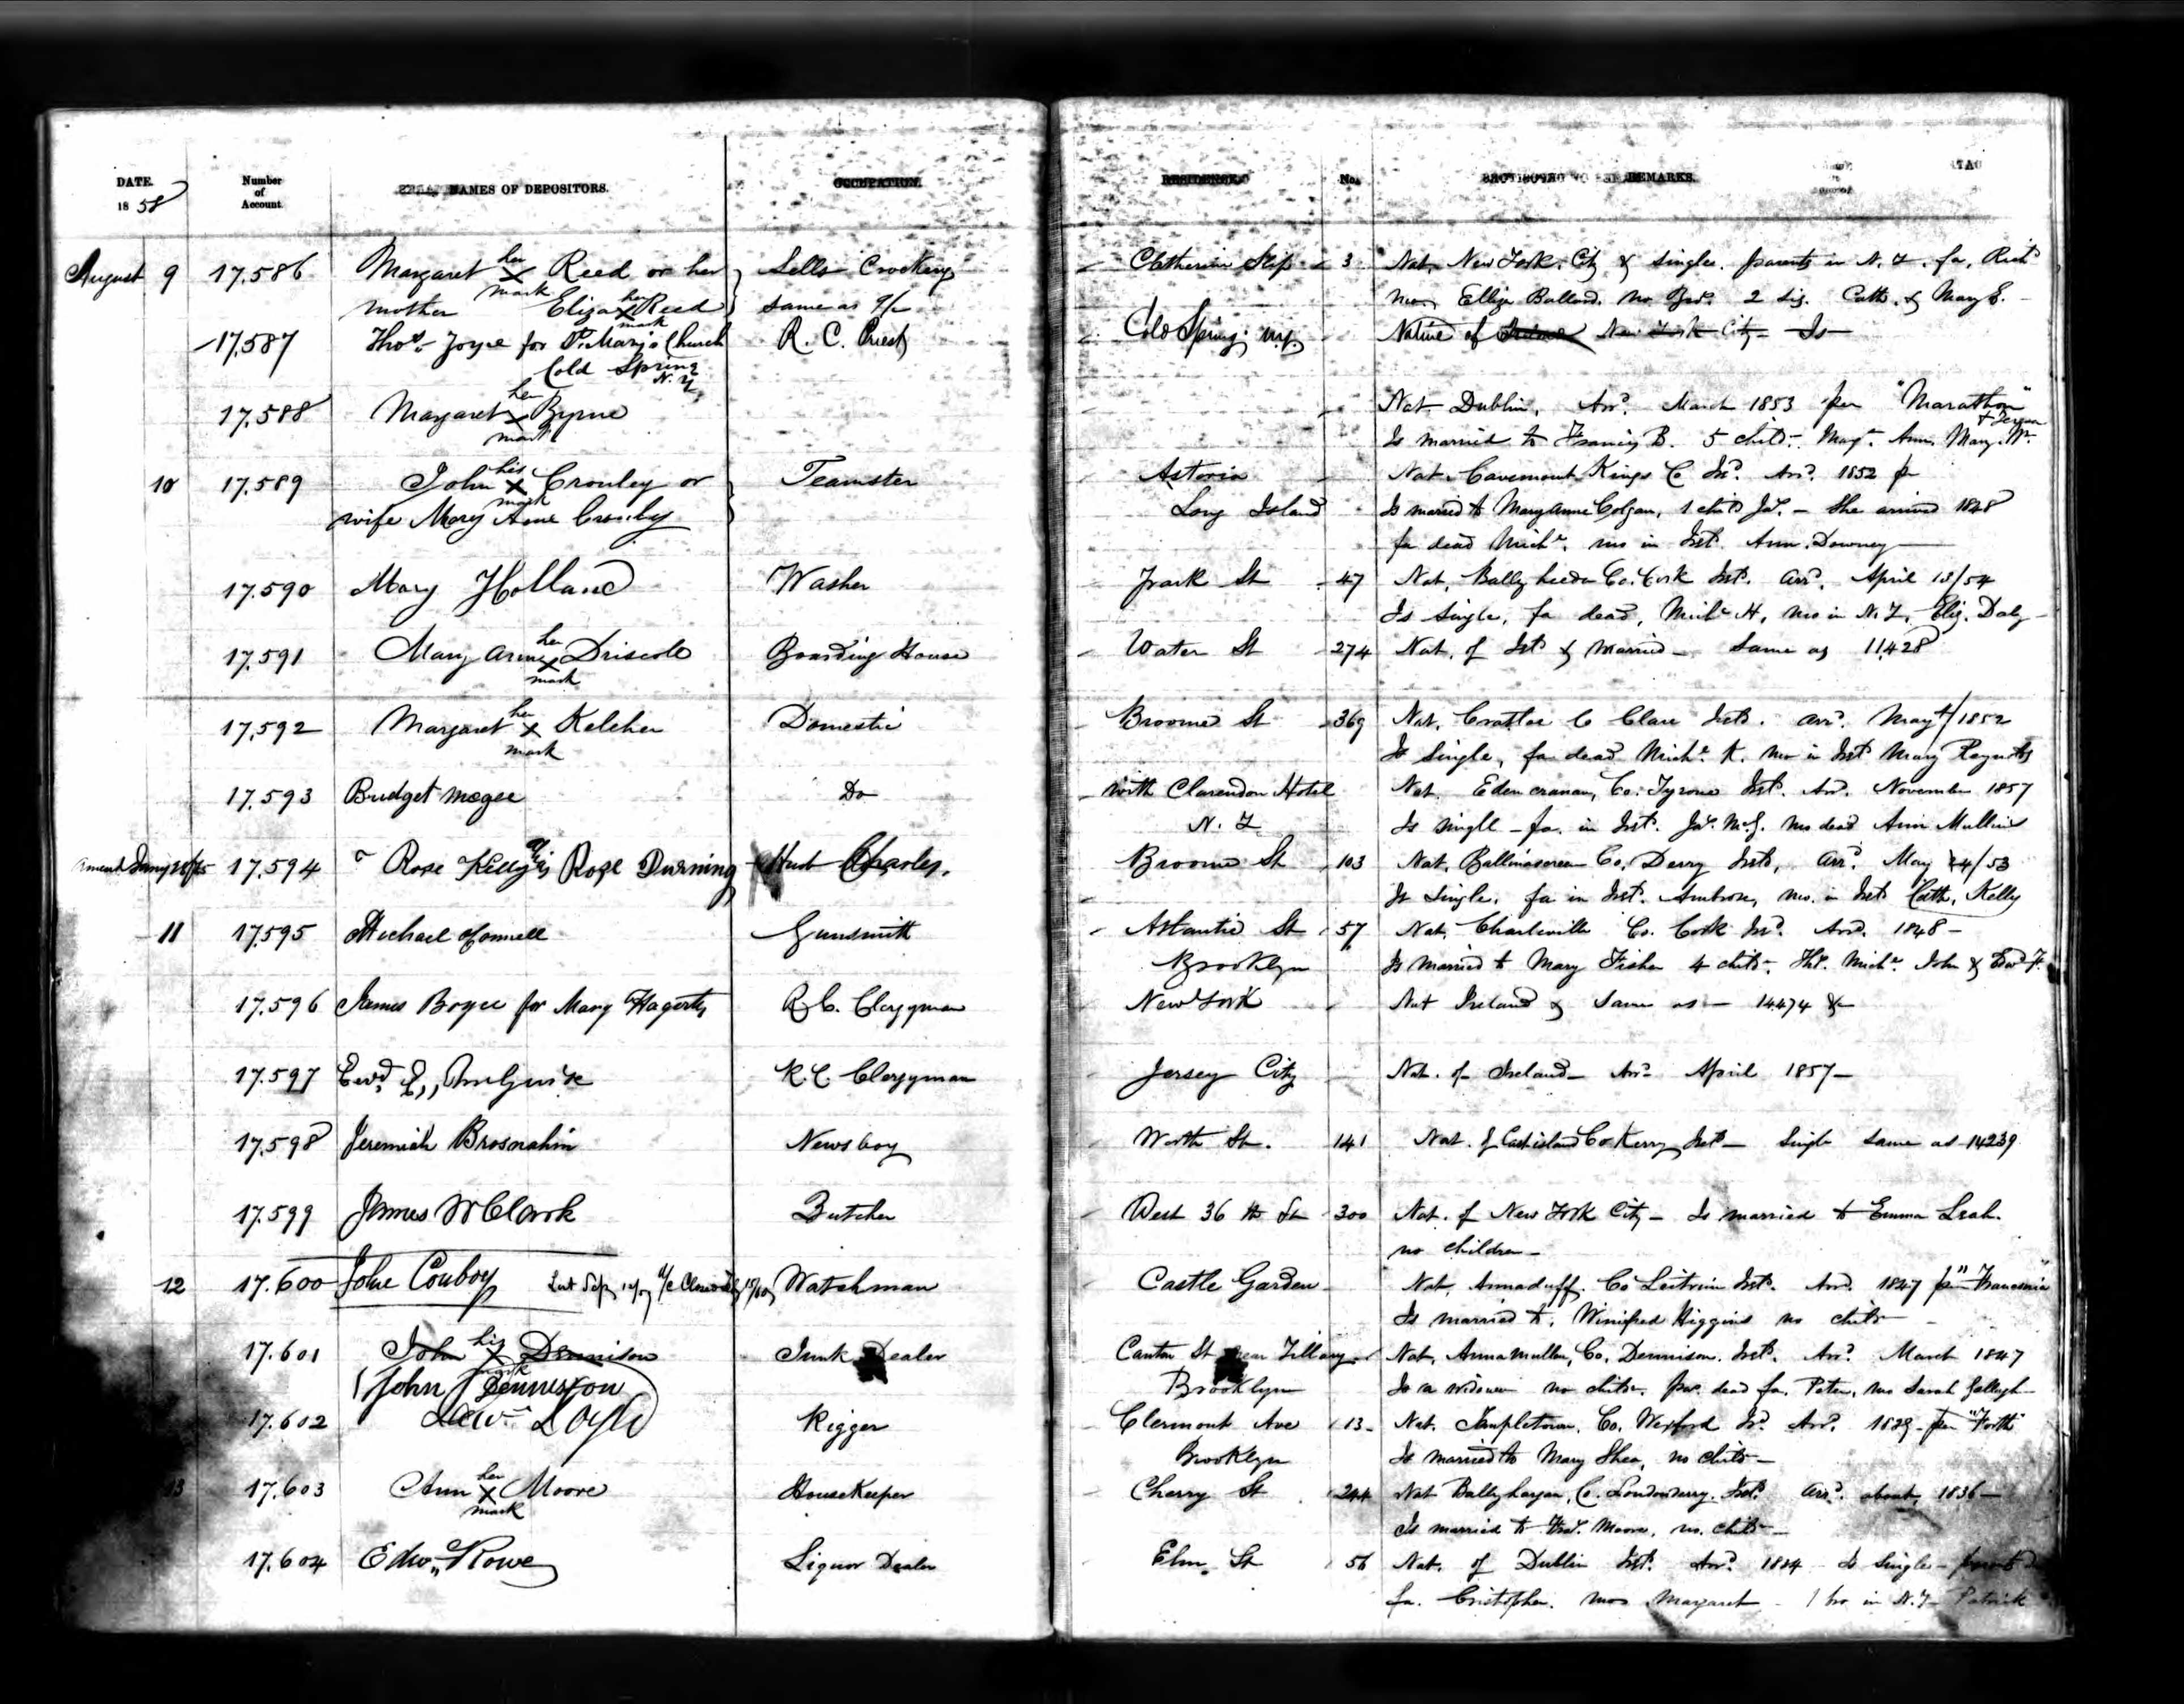 DATE. Number of Account. NAMES OF DEPOSITORS. OCCUPATION. RESIDENCE. No. REMARKS.
1858
August 9 17,586 Margaret her X mark Reed or her Sells Crockery Catherine Slip 3 Nat. New York City & single. parents in N.Y. fa. Richd
mother Eliza her X mark Reed same as a/c mo. Ballard. no Bro. 2 sis. Cath. & Mary E.
17,587 Thos. Joyce for St. Mary's Church R. C. Priest Cold Spring N.Y. Native of Ireland New York City Is
Cold Spring N.Y.
17,588 Margaret her X mark Byrne Nat Dublin, Arrd. March 1853 per "Marathon"
Is married to Francis B. 5 child. Magt. Ann, Mary, Wm.
10 17,589 John his X mark Crowley or Teamster Astoria Nat. Kings C Ird. Arrd. 1852 p
wife Mary Anne Crowley Long Island Is married to Mary Anne Colgan, 1 child Jas. - She arrived 1848
fa dead Michl. mo in Ireld. Ann Downey
17,590 Mary Holland Washer Park St 47 Nat. Co. Cork Ireld. Arrd. April 18/54
Is single, fa dead, Michl H, mo in N.Y. Eliz. Daly
17,591 Mary Anne her X mark Driscoll Boarding House Water St 274 Nat. of Ireld & married - Same as 11,428
17,592 Margaret her X mark Keleher Domestic Broome St 369 Nat. Co Clare Ireld. arrd. May /1852
Is single, fa dead Michl. K. mo in Ireld Mary Reynolds
17,593 Bridget Megee Do with Clarendon Hotel Nat. Edencranan, Co. Tyrone Ireld. Arrd. November 1857
N. Y. Is single - fa. in Ireld. Jas. McG. mo dead Ann Mullin
17,594 Rose Kelly Rose Durning Husb Charles. Broome St 103 Nat. Ballinascreen Co. Derry Ireld, arrd May 24/53
Is single. fa in Ireld. Ambrose, mo. in Ireld Cath. Kelly
11 17,595 Michael Connell Gunsmith Atlantic St 57 Nat. Charleville Co. Cork Ird. Arrd. 1848 -
Brooklyn Is married to Mary Fisher 4 child. Michl. John &
17,596 James Boyce for Mary Hagerty R. C. Clergyman New York Nat Ireland & Same as - 14,474 &
17,597 R. C. Clergyman Jersey City Nat. of Ireland Arrd April 1857 -
17,598 Jeremiah Brosnahin Newsboy Worth St. 141 Nat. of Castleisland Co Kerry Ireld - Single same as 14239
17,599 James W Clark Butcher West 36 th St 300 Nat. of New York City - Is married to Emma Leah.
no children -
12 17,600 John Conboy Watchman Castle Garden Nat. Annaduff. Co Leitrim Ireld. Arrd. 1847 p
Is married to. Winifred Higgins no child
17,601 John his X mark Dennison Junk Dealer Canton St near Tillary Nat. Co. Dennison. Ireld. Arrd. March 1847
John Denniston Brooklyn Is a widower no child. par. dead fa. Peter, mo Sarah
17,602 Rigger Clermont Ave 13 Nat. Templetown, Co. Wexford Ird. Arrd. 1829 - per "Forth"
Brooklyn Is married to Mary Shea, no child -
13 17,603 Ann her X mark Moore Housekeeper Cherry St 244 Nat Co. Londonderry Ireld. arrd. about 1836 -
Is married to Moore, no. child -
17,604 Edwd. Rowe Liquor Dealer Elm St 56 Nat. of Dublin Ireld. Arrd. Is single -
fa. Cristopher. mo Margaret - 1 bro in N.Y - Patrick